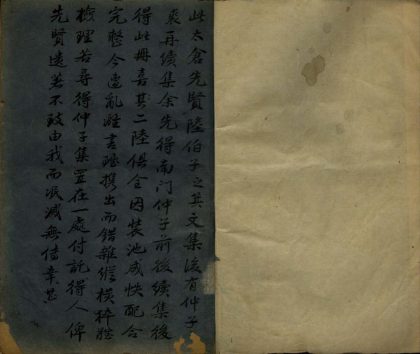 此太倉先賢陸伯子之箕文集後有仲子之
裘再續集余先得南门仲子前後續集後
得此冊喜其二陸俱全因裝池成快配合
完整今遭亂離書雖携出而錯雜縱横猝難
檢理若尋得仲子集置在一處付託得人俾
先賢遺著不致由我而泯滅無傳幸甚